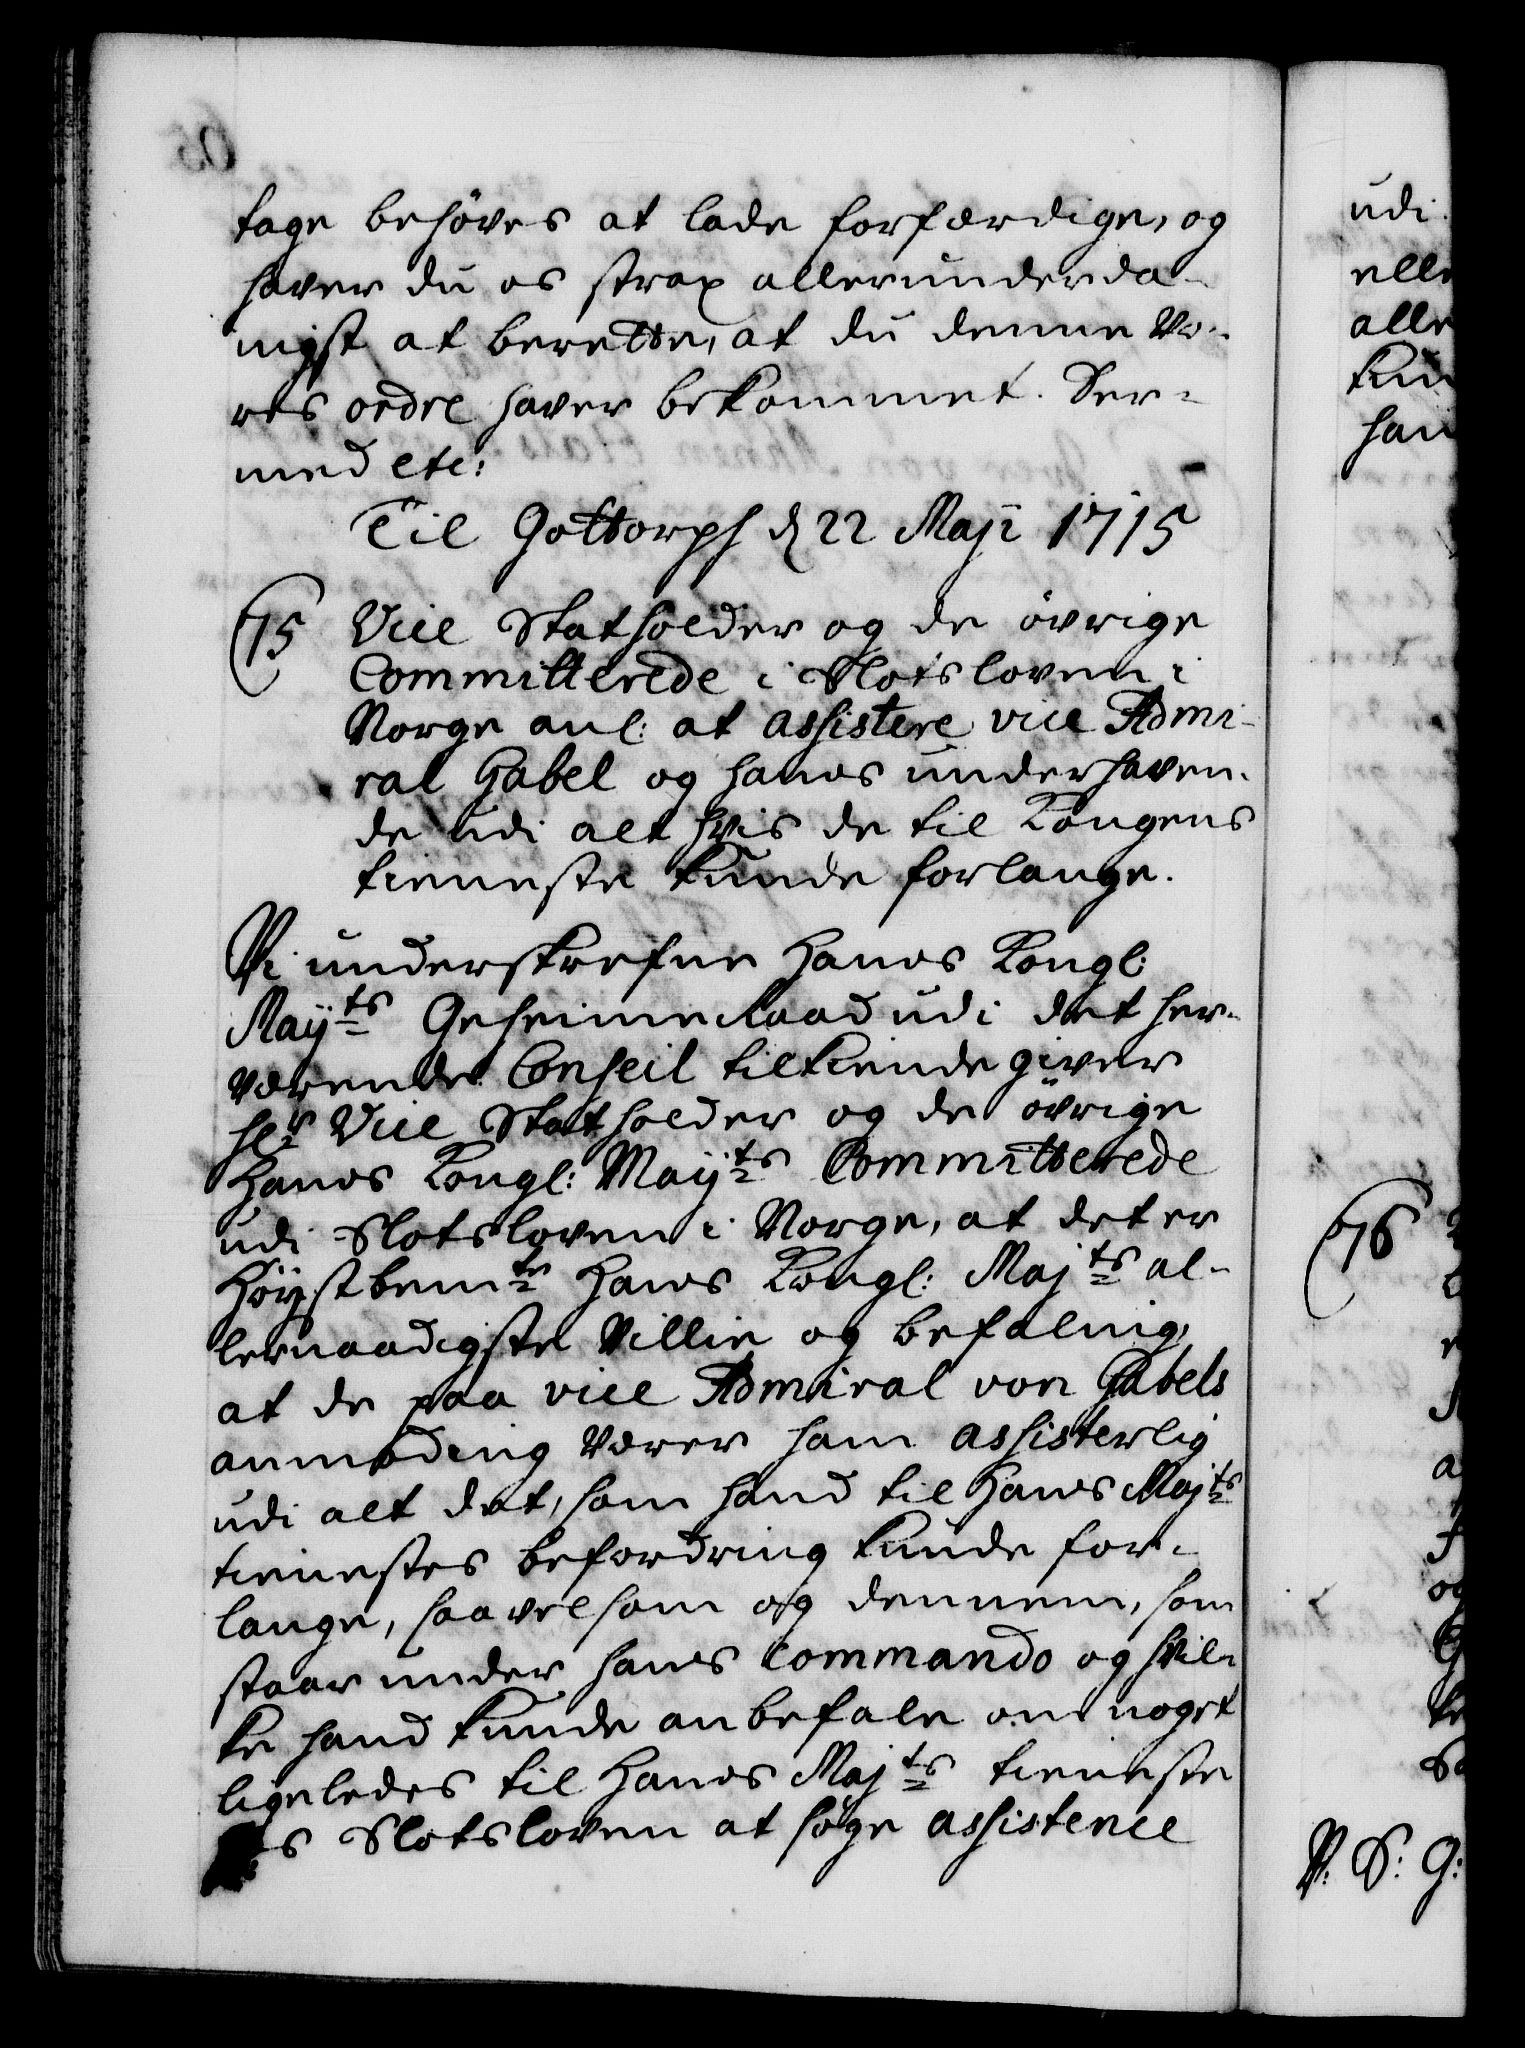 tage behöves at lade forfærdige, og
haver du os strax allerunderda-
nigst at berette, at du denne Vo-
res ordre haver bekommet. Der-
med etc:
Til Gottorph d 22 Maji 1715
75 Vice Statholder og de övrige
Committerede i Slotsloven i
Norge anl: at assistere vice Admi-
ral Gabel og hans underhaven-
de udi alt hvis de til Kongens
tieneste kunde forlange.
Vi underskrefne Hans Kongl:
Mayts Geheimeraad udi det her-
værende Conseil tilkiendegiver
hr Vice Statholder og de övrige
Hans Kongl: Mayts Committerede
udi Slotsloven i Norge, at det er
Höystbemte Hans Kongl: Majts al-
lernaadigste Villie og befaling,
at de paa vice Admiral von Gabels
anmoding værer ham assisterlig
udi alt det, som hand til Hans Majts
tienestes befordring kunde for-
lange, saavelsom og dennem, som
staar under hans Commando og hvil-
ke hand kunde anbefale om noget
ligeledes til Hans Majts tieneste
Slotsloven at söge assistence
udi
elle
alle
kun
han
76
og
V. S: G: